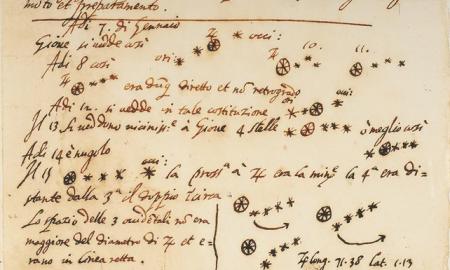 moto et preparamento.
Adi 7. di Gennaio
Gione si vedde così ♃ occi:
Adi 8 così ori: 10. 11.
♃ era dũq diretto et nõ retrogrado
ori occi:
Adi 12. si vedde in tale costituzione
Il 13 si veddono vicinissᵉ à Giove 4 stelle ò meglio così
Adi 14 è nugolo
Il 15 occi: la prossᵃ à ♃ era la minᵉ la 4ᵃ era di=
stante dalla 3ᵃ il doppio circa
Lo spazio delle 3 occidẽtali nõ era
maggiore del diametro di ♃ et e=
rano in linea retta.
♃ long. 71.38 Lat. 1.13